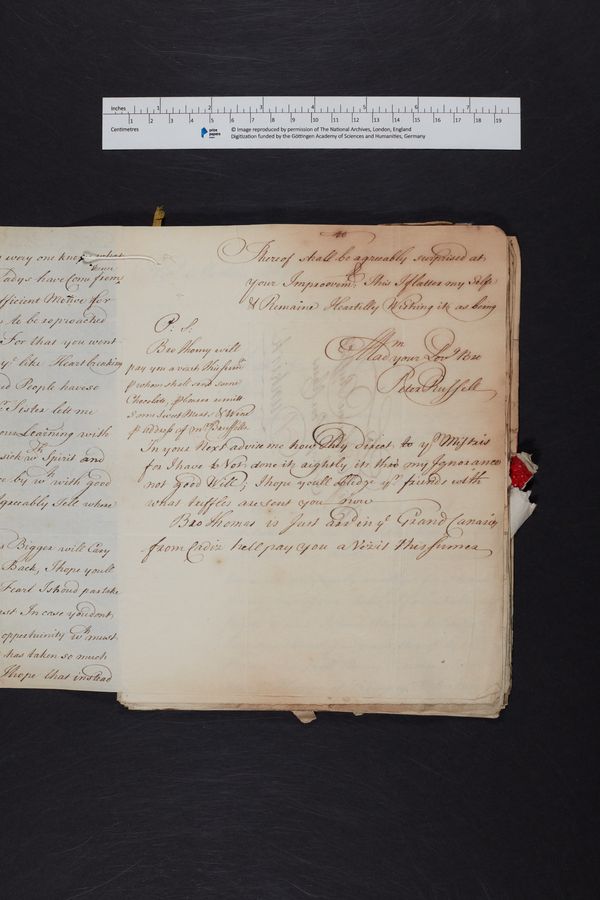 Inches 1 2 3 4 5 6 7
1 2 3 4 5 6 7 8 9 10 11 12 13 14 15 16 17 18 19
Centimetres
prize papers
© Image reproduced by permission of The National Archives, London, England
Digitization funded by the Göttingen Academy of Sciences and Humanities, Germany
very one
Ladys have Come from
fficient Motive for
to be reproached
For that you went
ye like Heart breaking
ed People have so
Sister lett me
our Learning with
sick wth Spirit and
by wth with good
Agreeably Sell where
Bigger will Cary
Back, I hope youll
Feart I shoud partake
In case you dont
oppertuinity wch must
has taken so much
I hope that instead
Thereof shall be agreeably surprised at
your Improovemt, This I flatter my Selfe
& Remaine Heartilly Wishing it, as being
Madm your Lovg Bro
Peter Russell
P. S.
Bro Thomy will
pay you a vesit this
whom shall send some
Chocolate, please remitt
some Sweet Meats & Wine
p adress of mr Russells
In your Next advise me how Duly Direct to ye Mistris
for I have Not done it rightly its thro my Ignorance
not good Will; I hope youll Oblidge yr friends with
what truffles are sent you now
Bro Thomas is Just arrd in ye Grand Canaries
from Cadiz hell pay you a Vesit this Summer